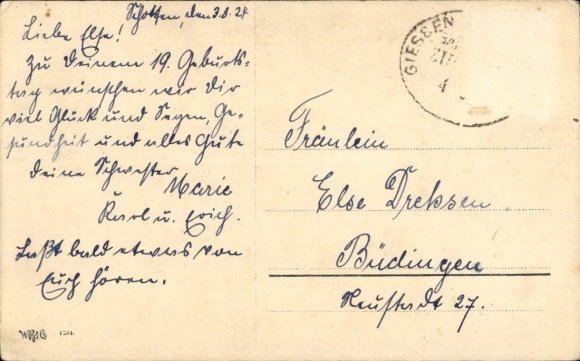 Schotten, den 3.8.24
Liebe Else!
Zu Deinem 19. Geburts-
tag wünschen wir Dir
viel Glück und Segen, Ge-
sundheit und alles Gute
Deine Schwester
Marie
u. Erich.
Laßt bald etwas von
Euch hören.
GIESSEN
4
Fräulein
Else Dreksen
Büdingen
Neustadt 27.